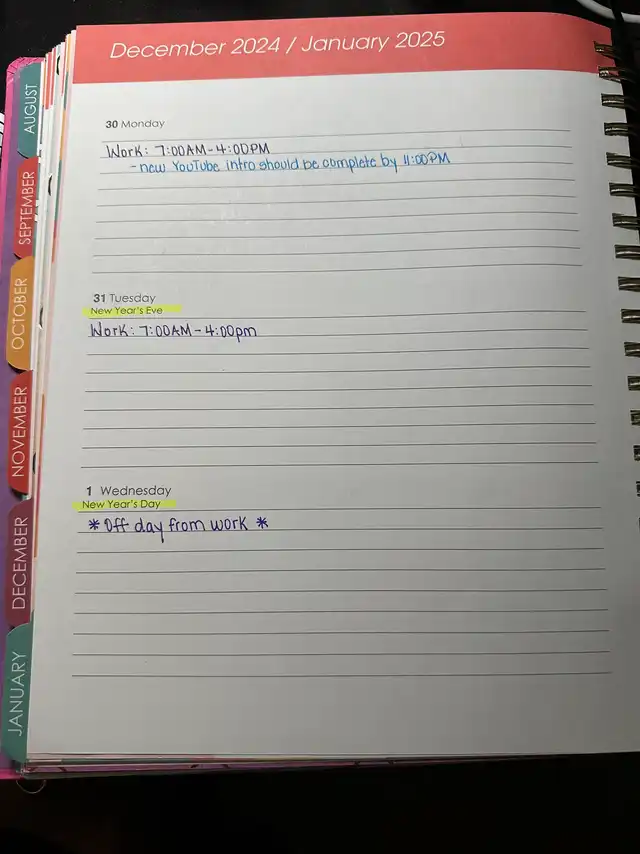 December 2024 / January 2025
30 Monday
Work: 7:00AM-4:00PM
-new YouTube intro should be complete by 11:00PM
31 Tuesday
New Year's Eve
Work: 7:00AM-4:00pm
1 Wednesday
New Year's Day
* Off day from work *
AUGUST
SEPTEMBER
OCTOBER
NOVEMBER
DECEMBER
JANUARY